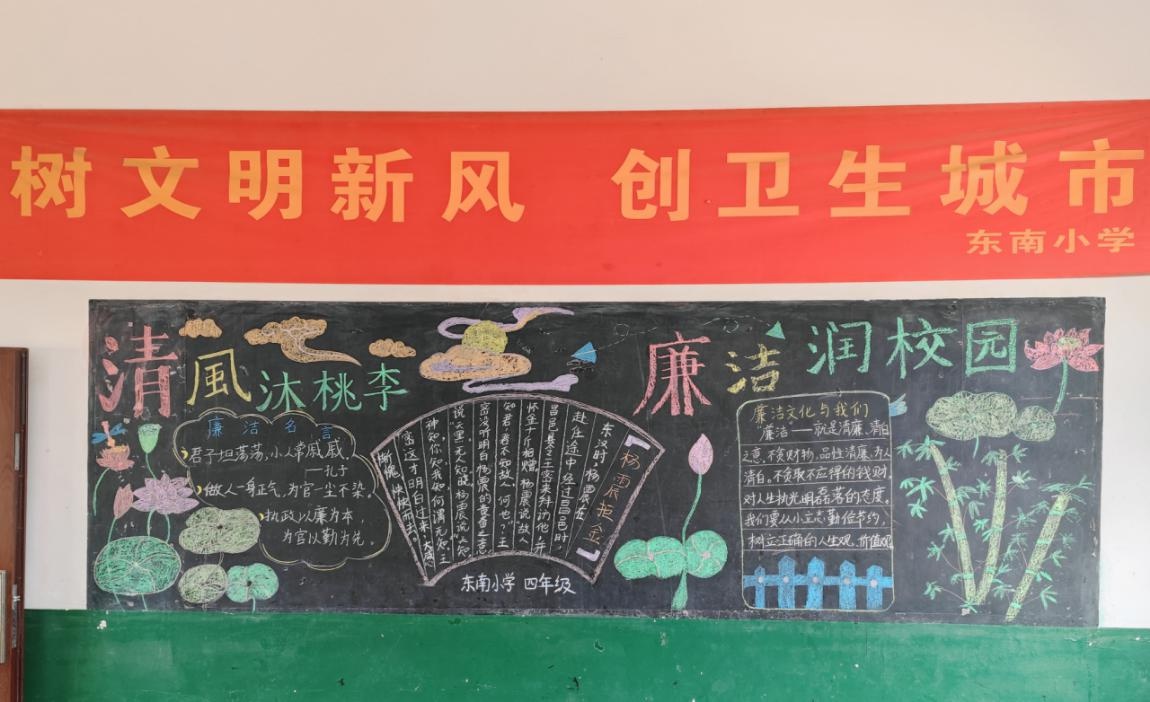 树文明新风 创卫生城市
东南小学
清風沐桃李
廉洁润校园
廉洁名言
君子坦荡荡,小人常戚戚,
——孔子
做人一身正气,为官一尘不染。
执政以廉为本,
为官以勤为先。
【杨震拒金】
东汉时,杨震在
赴任途中经过昌邑时
昌邑县令王密来拜访他,并
怀金十斤相赠。杨震说:故人
知君,君不知故人,何也?”王
密没听明白杨震的责备之意
说:“天黑,无人知晓。杨震说:“天知
神知,你知,我知,何谓无知?”王
密这才明白过来,大感
惭愧,怏怏而去。
东南小学 四年级
廉洁文化与我们
“廉洁”——就是清廉、清白
之意,不贪财物,品性清廉,为人
清白。不贪取不应得的钱财,
对人生执光明磊落的态度。
我们要从小立志,勤俭节约,
树立正确的人生观、价值观